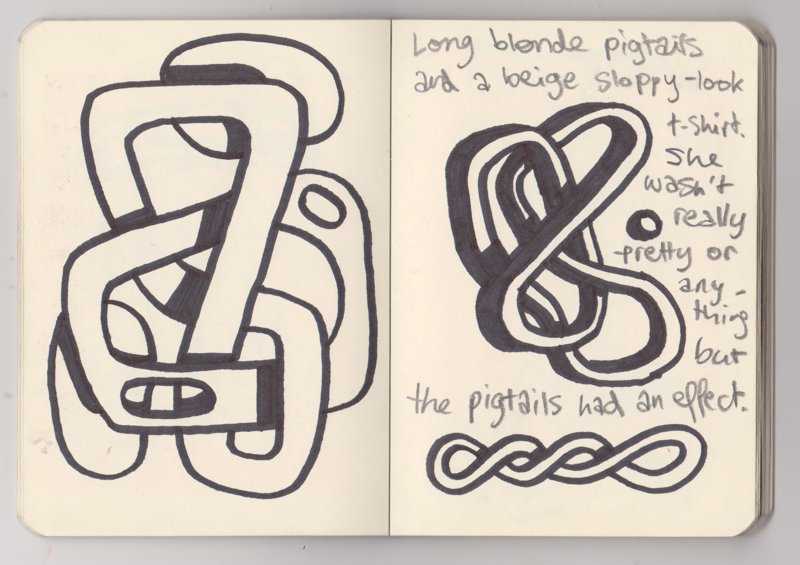 Long blonde pigtails
and a beige sloppy-look
t-shirt.
She
wasn't
really
pretty or
any-
thing
but
the pigtails had an effect.